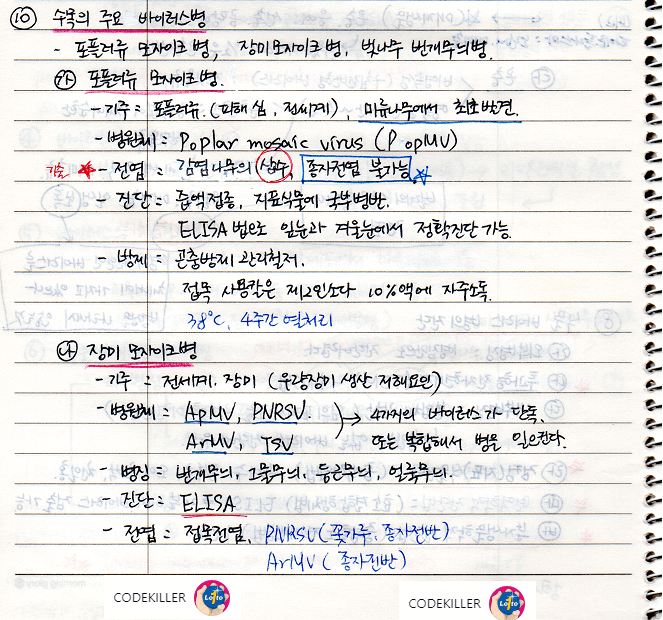 ⑩ 수목의 주요 바이러스병
- 포플러류 모자이크병, 장미모자이크병, 벚나무 번개무늬병.
㉮ 포플러류 모자이크병.
- 기주 = 포플러류. (피해 심, 전세계), 미류나무에서 최초발견.
- 병원체 = Poplar mosaic virus (PopMV)
기출 ★ - 전염 = 감염나무의 삽수, 종자전염 불가능 ☆
- 진단 = 즙액접종, 지표식물에 국부병반.
ELISA법으로 잎눈과 겨울눈에서 정확진단 가능.
- 방제 = 곤충방제 관리철저.
접목 사용칼은 제2인산소다 10%액에 자주소독.
38℃, 4주간 열처리
㉯ 장미 모자이크병
- 기주 = 전세계. 장미 (우량장미 생산 저해요인)
- 병원체 = ApMV, PNRSV. → 4가지의 바이러스가 단독,
ArMV, TSV 또는 복합해서 병을 일으킨다.
- 병징 = 번개무늬, 그물무늬, 둥근무늬, 얼룩무늬.
- 진단 = ELISA
- 전염 = 접목전염, PNRSV (꽃가루, 종자전반)
ArMV (종자전반)
CODEKILLER Lotto
CODEKILLER Lotto